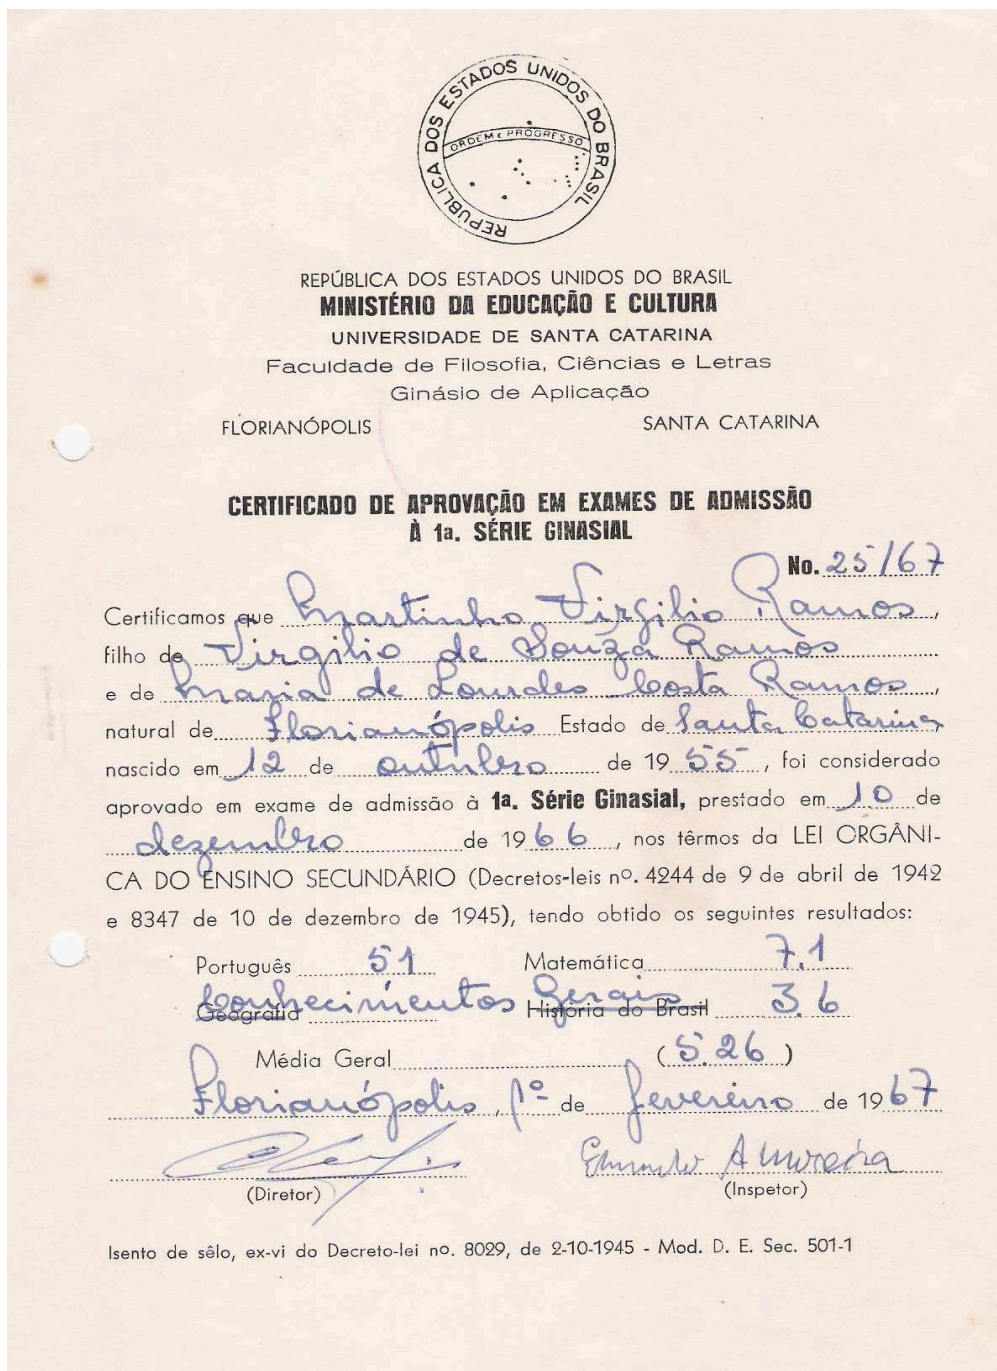 REPÚBLICA DOS ESTADOS UNIDOS DO BRASIL
ORDEM E PROGRESSO
REPÚBLICA DOS ESTADOS UNIDOS DO BRASIL
MINISTÉRIO DA EDUCAÇÃO E CULTURA
UNIVERSIDADE DE SANTA CATARINA
Faculdade de Filosofia, Ciências e Letras
Ginásio de Aplicação
FLORIANÓPOLIS SANTA CATARINA
CERTIFICADO DE APROVAÇÃO EM EXAMES DE ADMISSÃO
À 1a. SÉRIE GINASIAL
No. 25/67
Certificamos que Martinho Virgilio Ramos,
filho de Virgilio de Souza Ramos
e de Maria de Lourdes Costa Ramos,
natural de Florianópolis Estado de Santa Catarina
nascido em 12 de outubro de 1955, foi considerado
aprovado em exame de admissão à 1a. Série Ginasial, prestado em 10 de
dezembro de 1966, nos têrmos da LEI ORGÂNI-
CA DO ENSINO SECUNDÁRIO (Decretos-leis nº. 4244 de 9 de abril de 1942
e 8347 de 10 de dezembro de 1945), tendo obtido os seguintes resultados:
Português 51 Matemática 7.1
Conhecimentos Gerais 3.6
Geografia História do Brasil
Média Geral (5.26)
Florianópolis, 1º de fevereiro de 1967
Almeida
(Diretor) (Inspetor)
Isento de sêlo, ex-vi do Decreto-lei no. 8029, de 2-10-1945 - Mod. D. E. Sec. 501-1